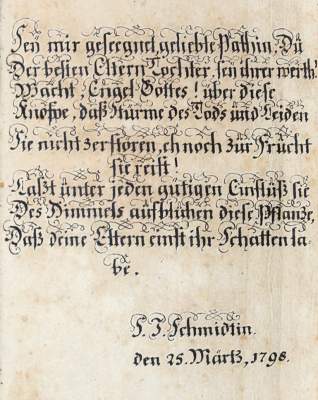 Sey mir geseegnet, geliebte Pathin, Du
Der besten Eltern Tochter, sey ihrer werth!
Wacht, Engel Gottes! über diese
Knospe, daß Stürme des Tods und Leiden
Sie nicht zerstören, eh noch zur Frücht
sie reift!
Laßt ünter jeden gütigen Einflüß sie
Des Himmels aufblühen diese Pflanze,
Daß deine Eltern einst ihr Schatten la-
be.
S. J. Schmidtin.
den 25. Märtz, 1798.